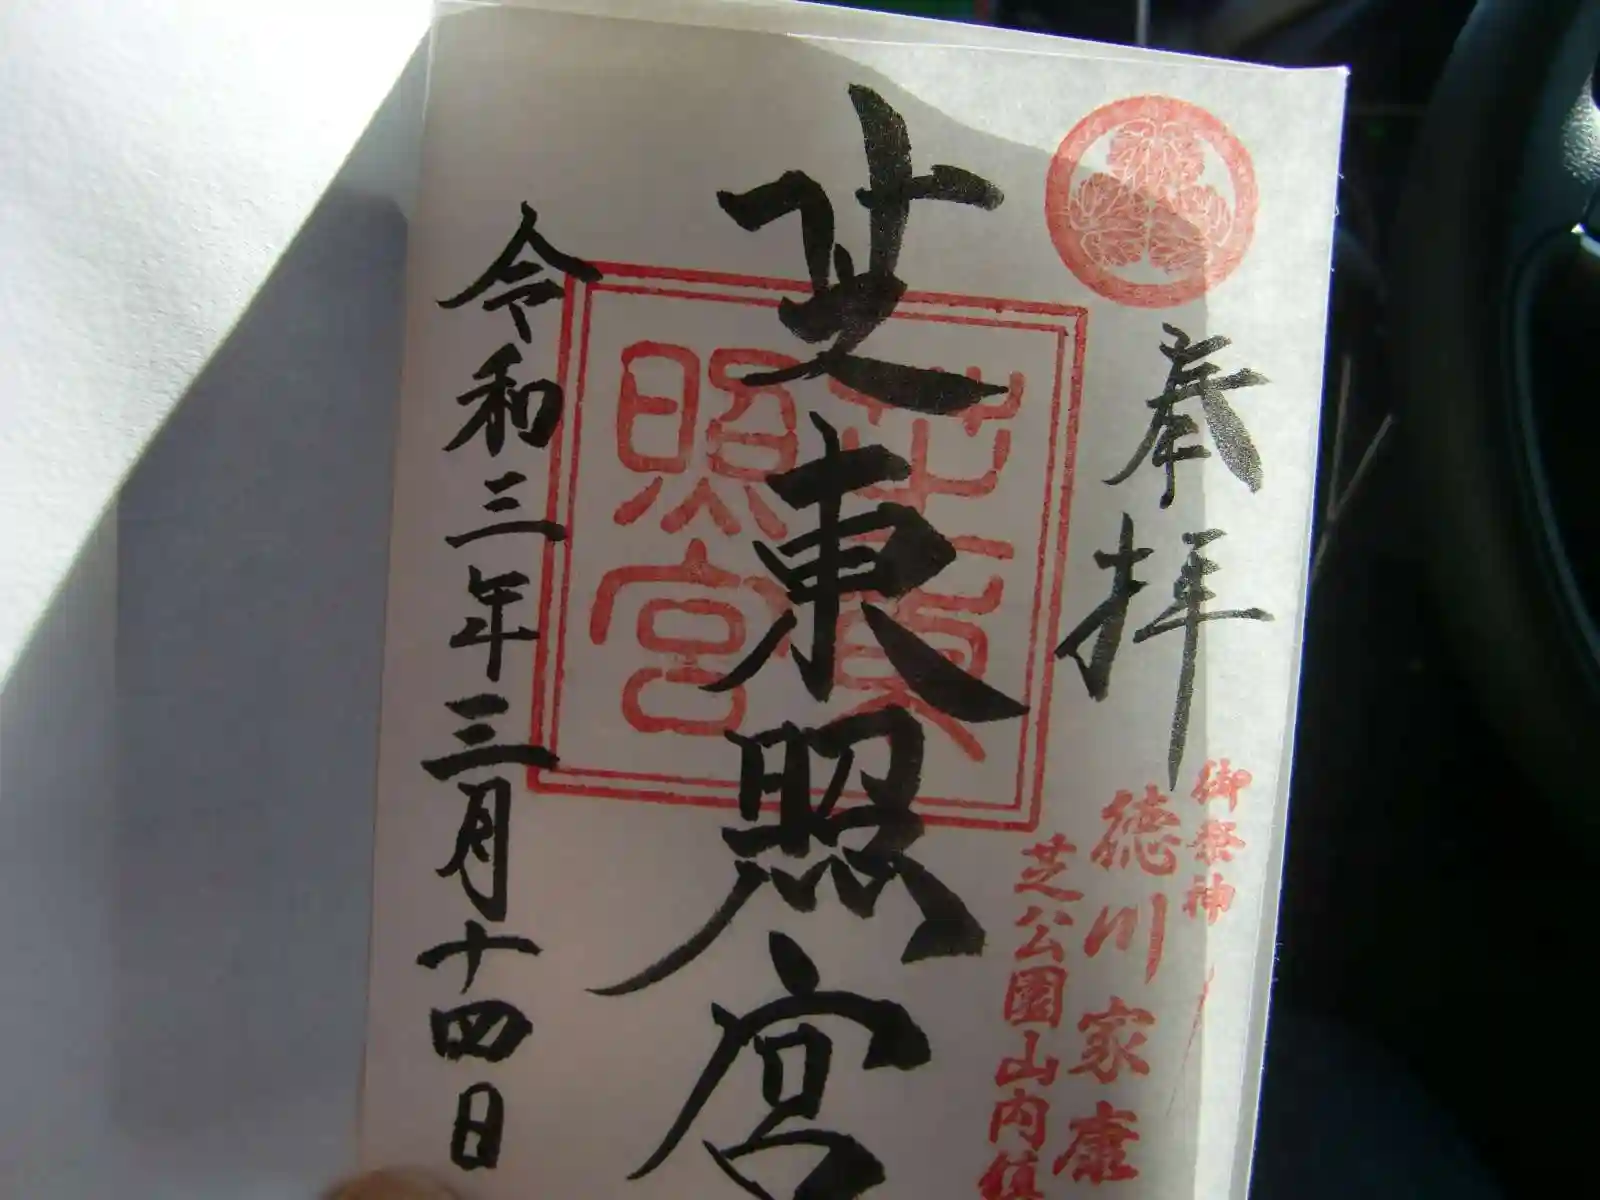 奉拝
御祭神
徳川家康
芝公園山内鎮
芝東照宮
芝東照宮
令和三年三月十四日